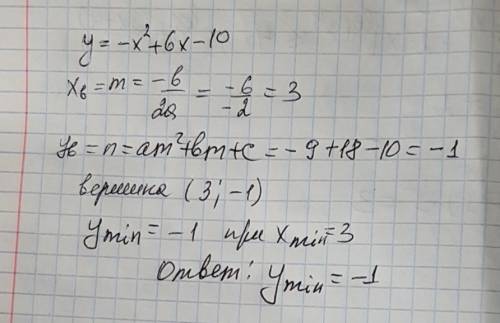 y = -x²+6x-10
xв = m = -b/2a = -6/-2 = 3
yв = n = am²+bm+c = -9+18-10 = -1
вершина (3; -1)
ymin = -1 при xmin = 3
Ответ: ymin = -1